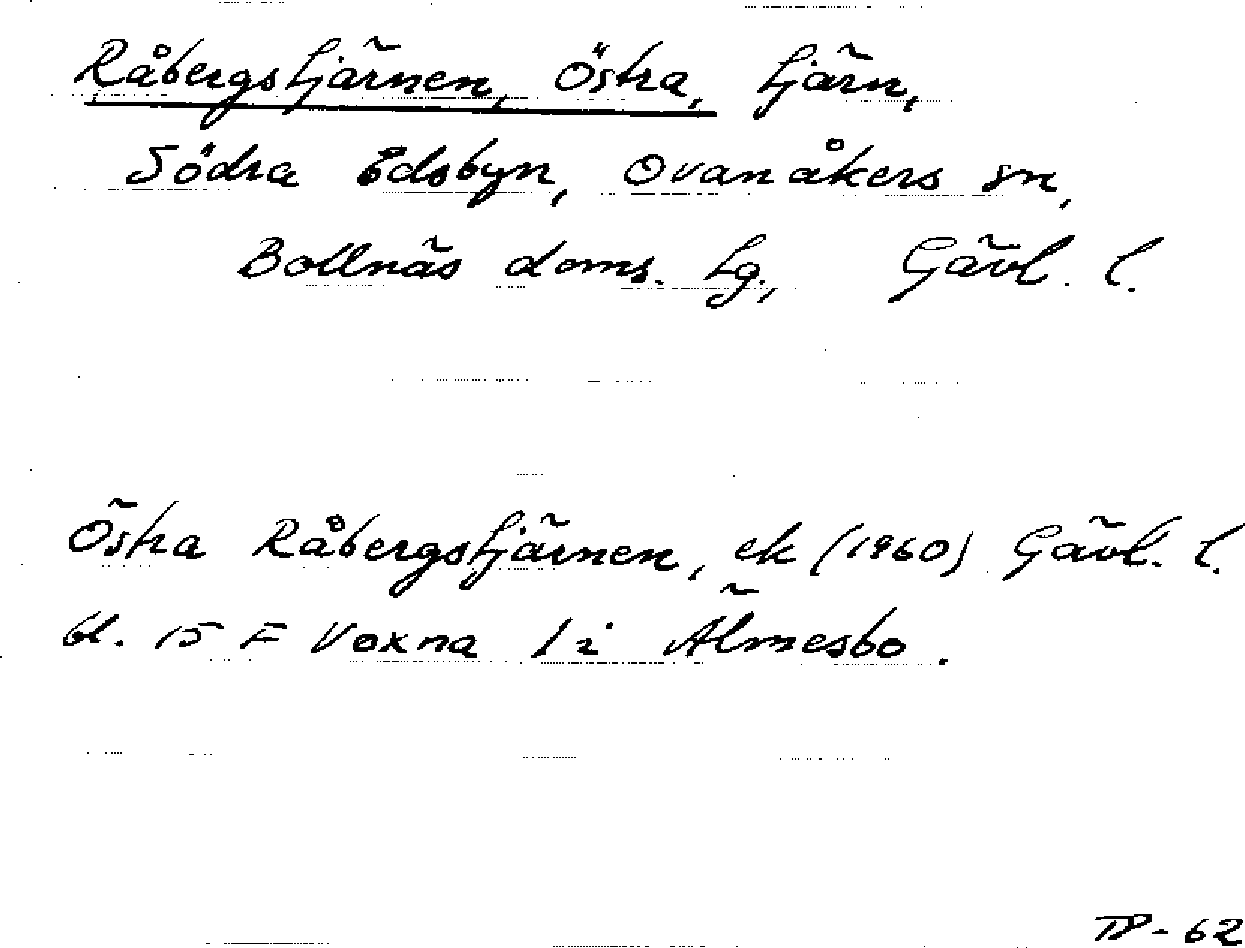 Råbergstjärnen, Östra, tjärn,
Södra Edsbyn, Ovanåkers sn,
Bollnäs doms. lg., Gävl. l.
Östra Råbergstjärnen, ek (1960) Gävl. l.
bl. 15 F Voxna 1 i Älmesbo.
TP-62